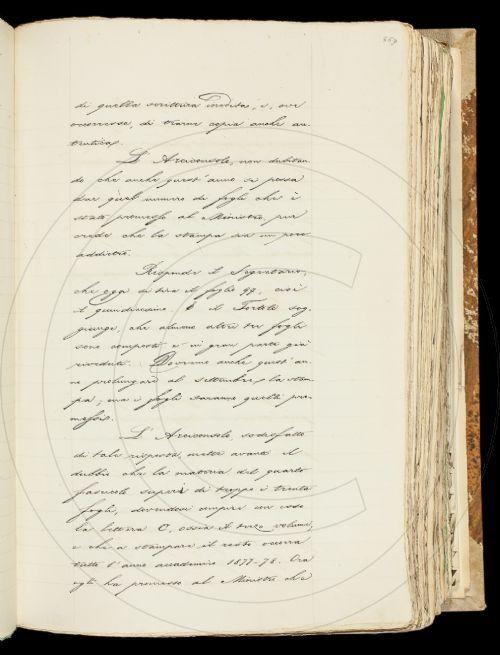 di quella scrittura inedita, e, ove
occorresse, di trarne copia anche au-
tentica.
L'Arciconsolo, non dubitan-
do che anche quest'anno si possa
dare quel numero di fogli che è
stato promesso al Ministro, pur
crede che la stampa sia un poco
addietro.
Risponde il Segretario,
che oggi si tira il foglio 99, cioè
il quindicesimo. E il Tortoli sog-
giunge, che almeno altri tre fogli
sono composti e in gran parte già
riveduti. Dovremo anche quest'an-
no prolungare al settembre la stam-
pa; ma i fogli saranno quelli pro-
messi.
L'Arciconsolo, sodisfatto
di tale risposta, mette avanti il
dubbio che la materia del quarto
fascicolo superi di troppo i trenta
fogli, dovendosi compire con esso
la lettera C, ossia il terzo volume,
e che a stampare il resto occorra
tutto l'anno accademico 1877-78. Ora
egli ha promesso al Ministro che